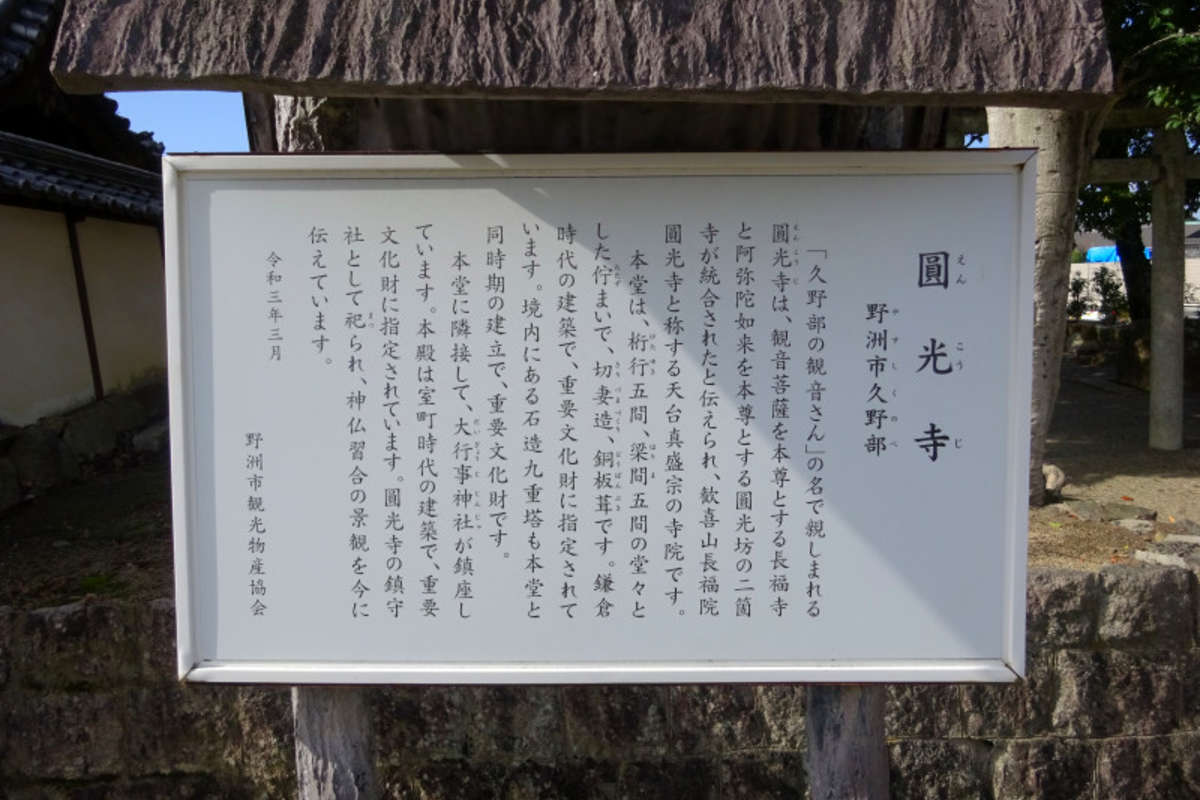 圓光寺
野洲市久野部
「久野部の観音さん」の名で親しまれる
圓光寺は、観音菩薩を本尊とする長福寺
と阿弥陀如来を本尊とする圓光坊の二箇
寺が統合されたと伝えられ、歓喜山長福院
圓光寺と称する天台真盛宗の寺院です。
本堂は、桁行五間、梁間五間の堂々と
した佇まいで、切妻造、銅板葺です。鎌倉
時代の建築で、重要文化財に指定されて
います。境内にある石造九重塔も本堂と
同時期の建立で、重要文化財です。
本堂に隣接して、大行事神社が鎮座し
ています。本殿は室町時代の建築で、重要
文化財に指定されています。圓光寺の鎮守
社として祀られ、神仏習合の景観を今に
伝えています。
令和三年三月
野洲市観光物産協会